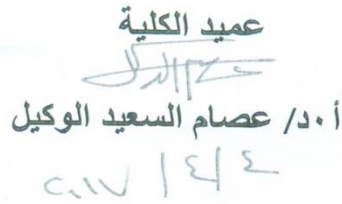 عميد الكلية
أ٠د/ عصام السعيد الوكيل
٢٠١٧ / ٤ / ٤